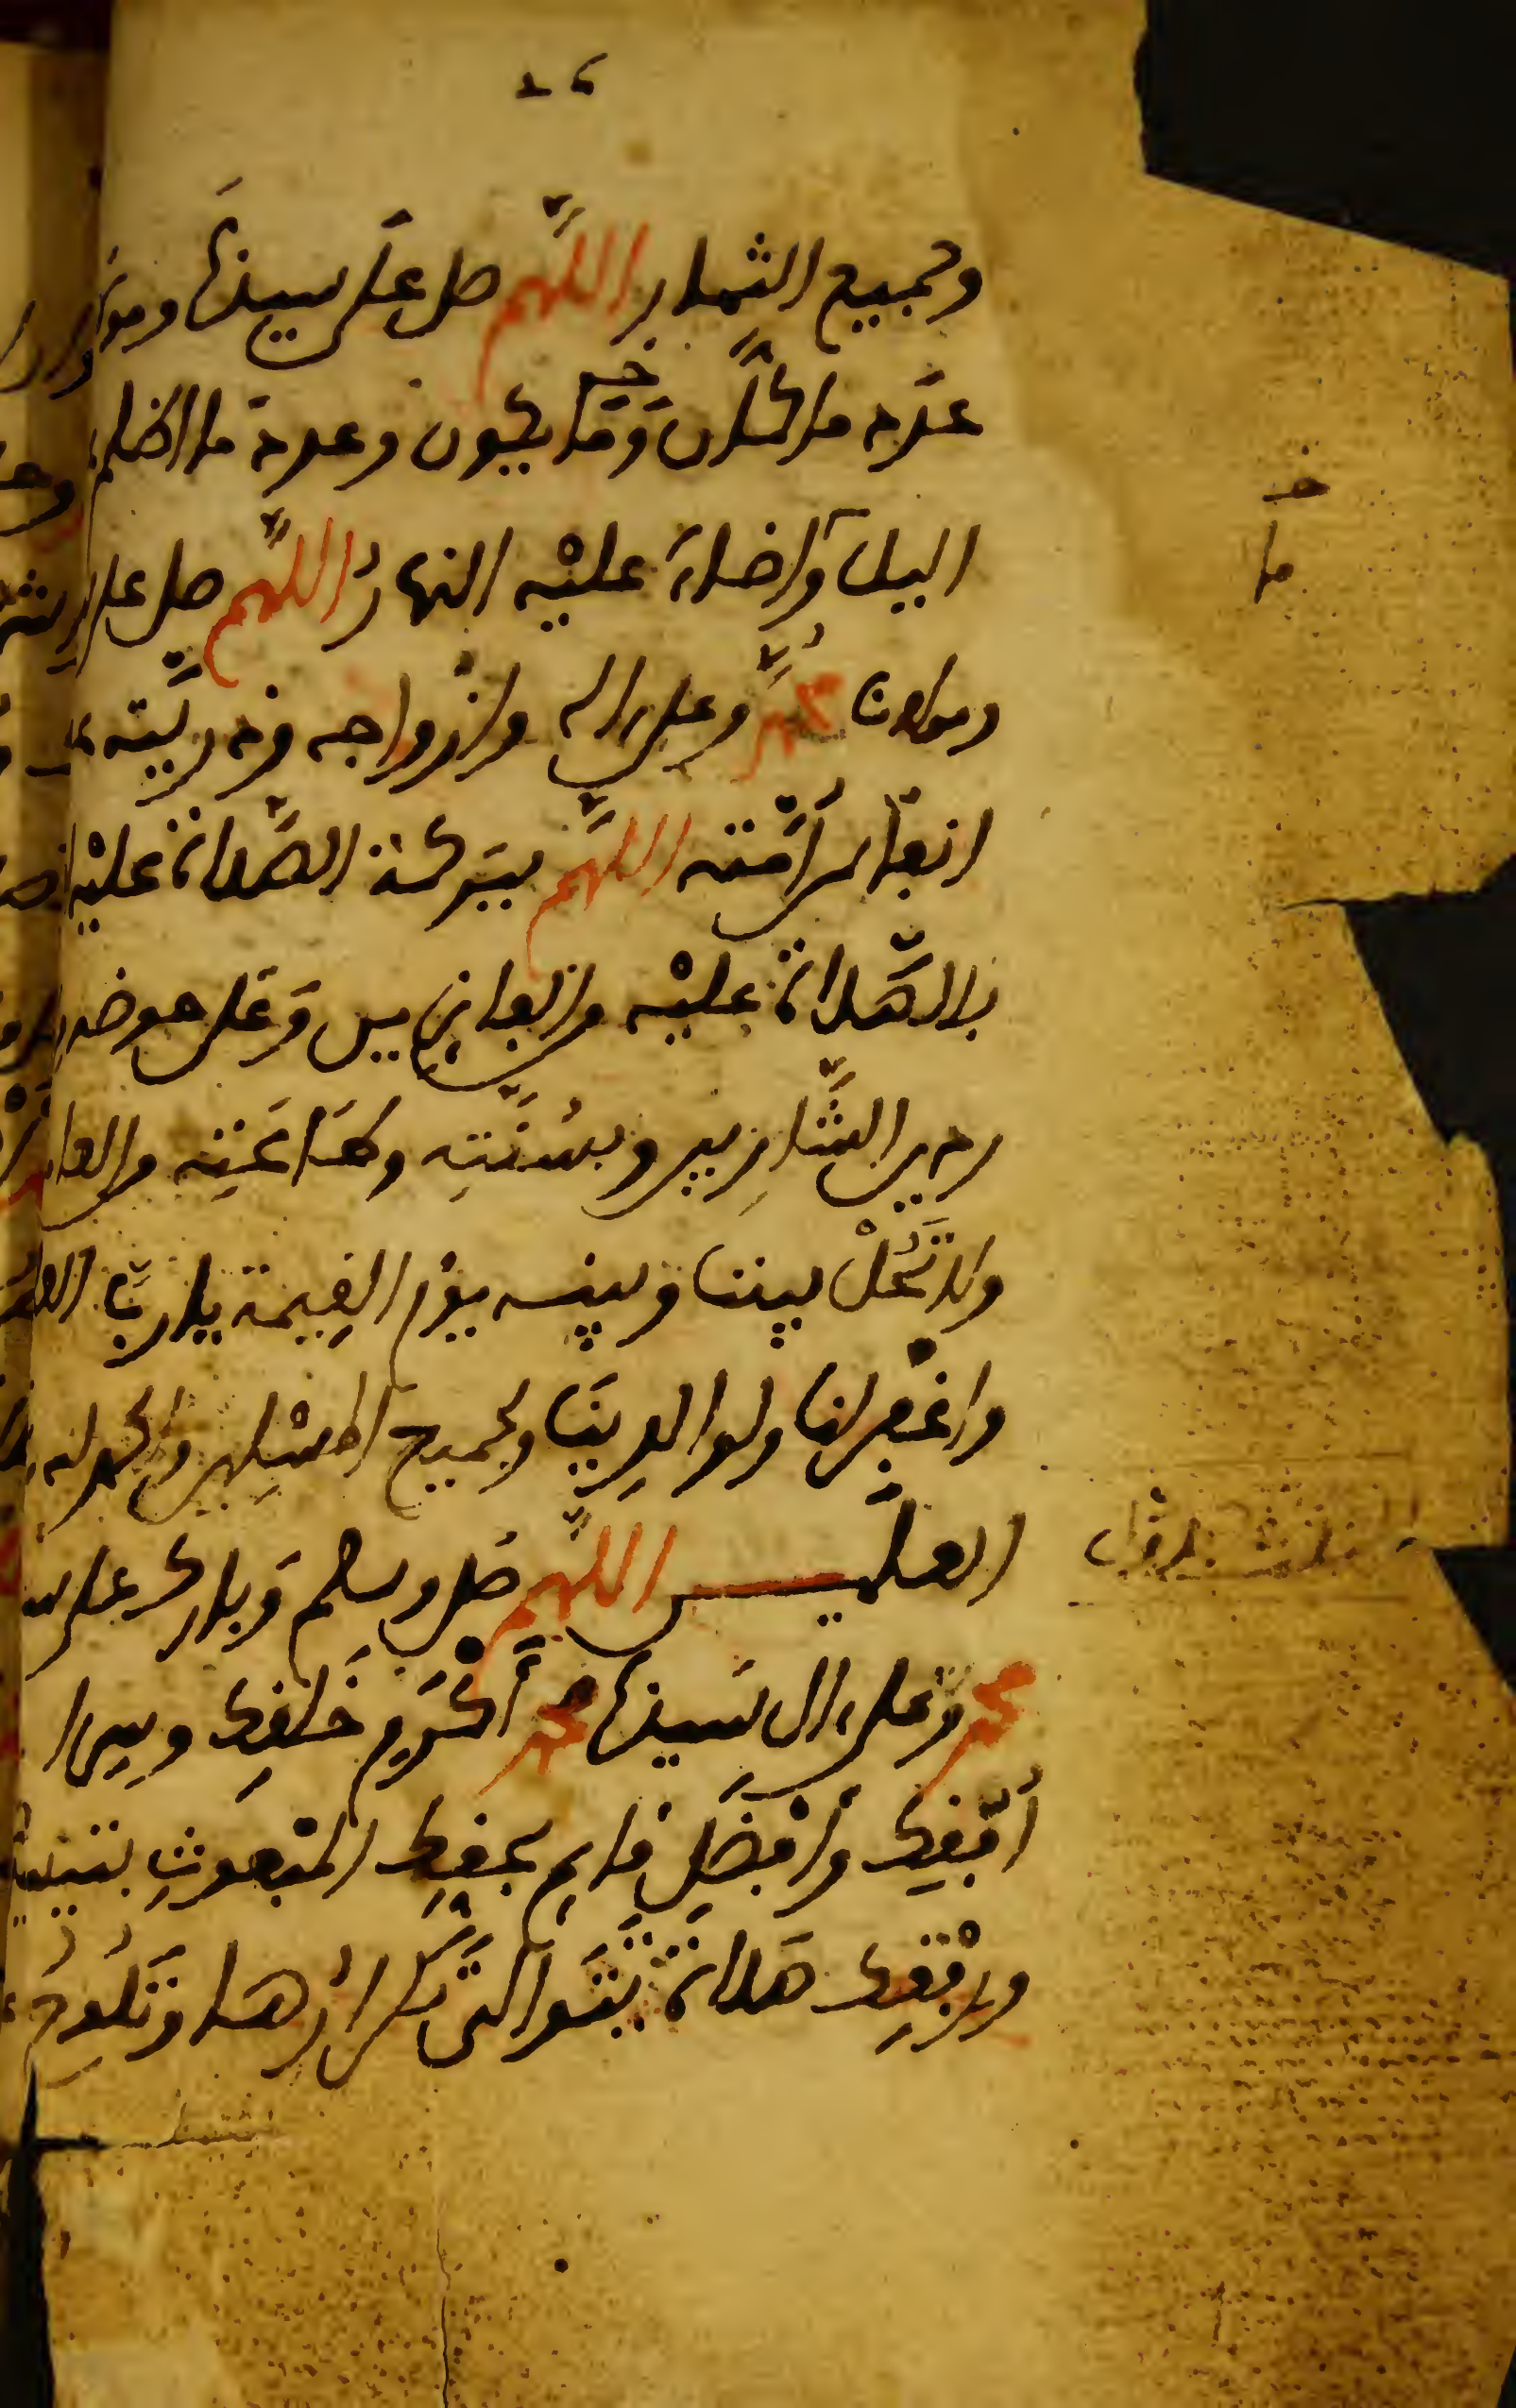 وجميع الثمار اللهم صل على سيدنا ومولنا
عدد ما كان وما يكون وعدد ما اظلم
خـ
ما
اليل وأضاء عليه النهار اللهم صل على
ومولانا محمد وعلى اله وأزواجه وذريته
امته اللهم ببركة الصلاة عليه
بالصلاة عليه من الفايزين وعلى حوضه
ردين الشاربين وبسنته وطاعته من العا
ولا تحل بيننا وبينه يوم القيمة يا رب العلمـ
واغفر لنا ولوالدينا ولجميع المسلمين والحمد لله
العلمين اللهم صل وسلم وبارك على
محمد وعلى ال سيدنا محمد أكرم خلقك وسراج
أفقك وأفضل قايم بحقك المبعوث بتيسيـ
ورفقك صلاة يتوالى تكرارها وتلوح